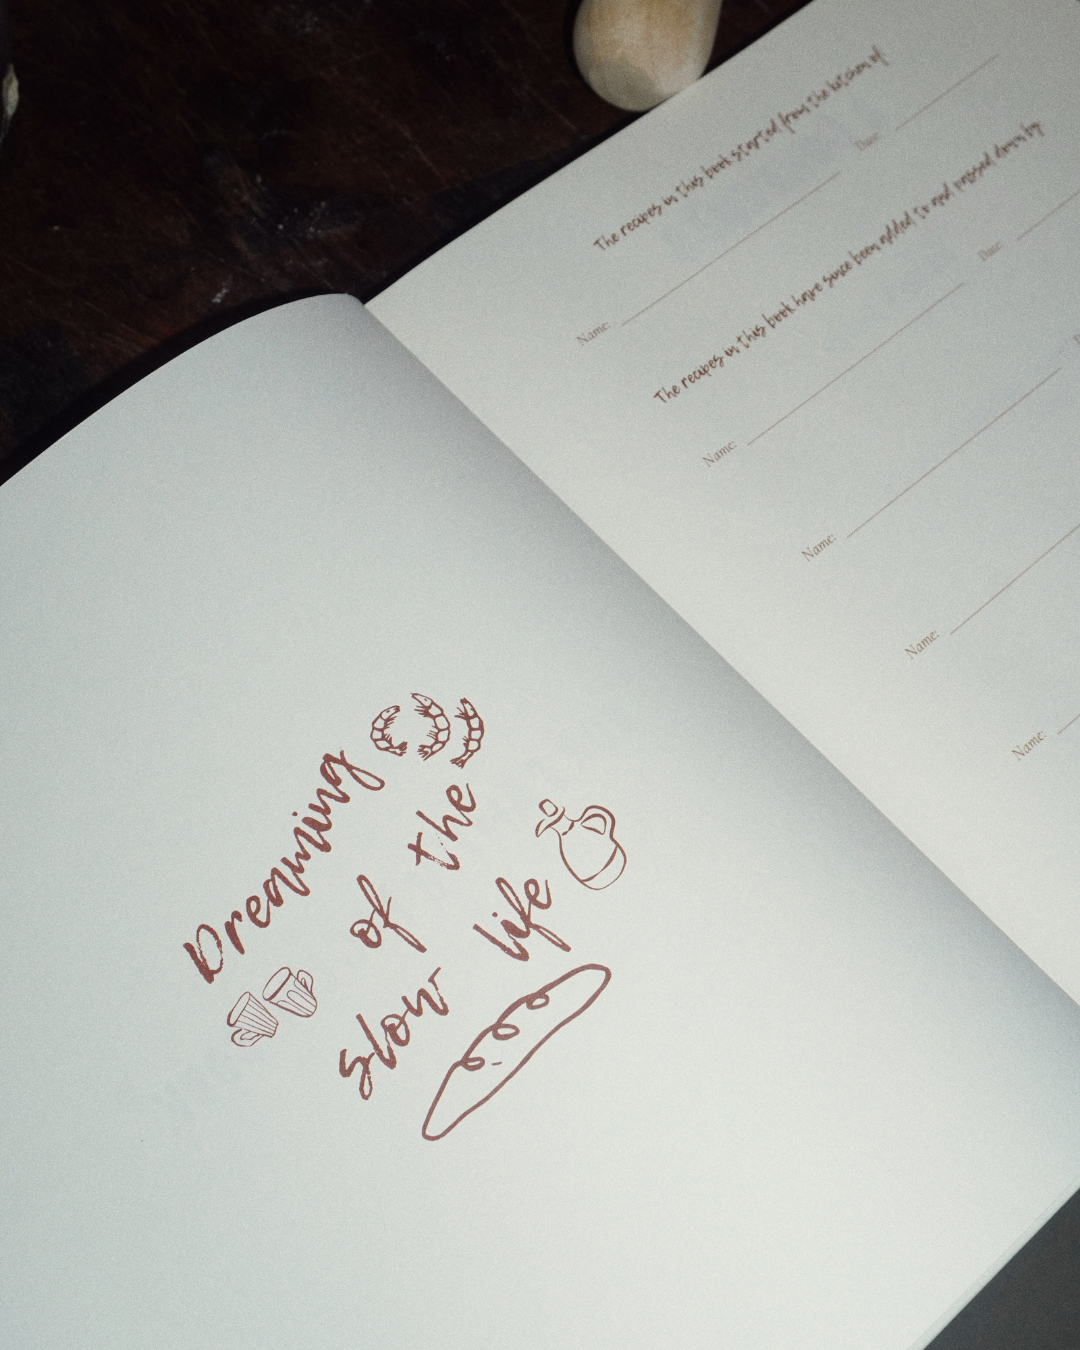 Dreaming
of the
slow life
The recipes in this book started from the kitchen of
Name: Date:
The recipes in this book have since been added to and passed down by:
Name: Date:
Name:
Name:
Name: